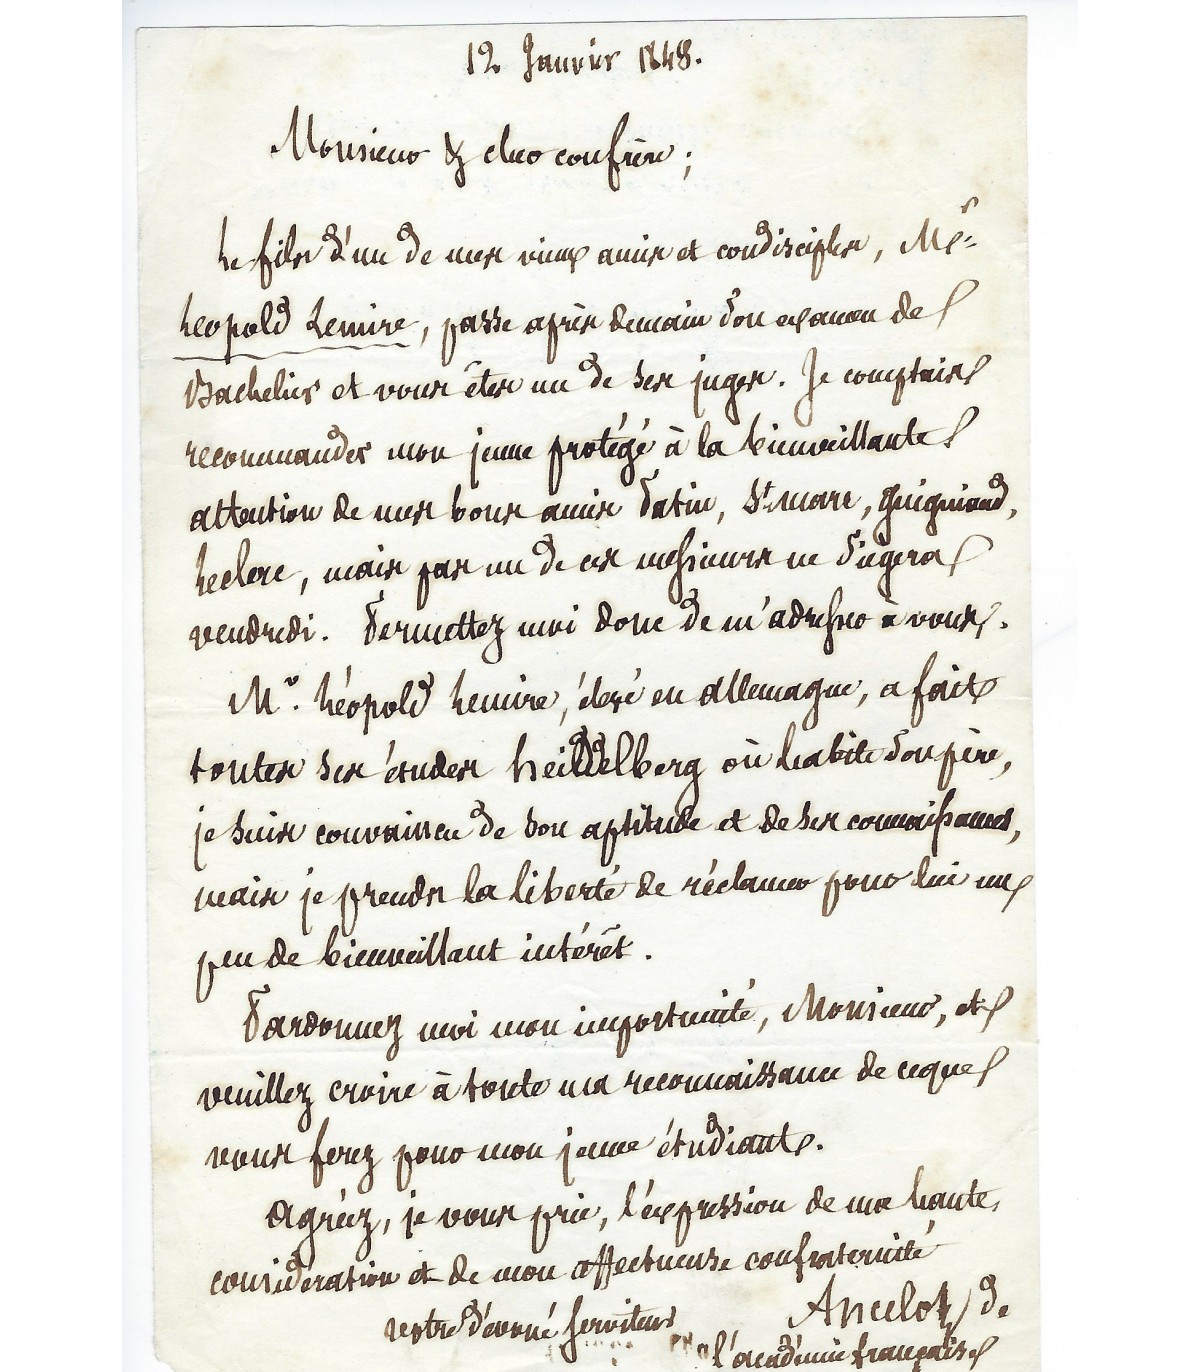 12 Janvier 1848.
Monsieur & cher confrère ;
Le fils d'un de mes vieux amis et condisciples, Mr
Léopold Lemire, passe après demain son examen de
Bachelier et vous êtes un de ses juges. Je comptais
recommander mon jeune protégé à la bienveillante
attention de mes bons amis Patin, St marc, guigniaud,
Leclerc, mais pas un de ces messieurs ne siégera
vendredi. Permettez moi donc de m'adresser à vous.
Mr. Léopold Lemire, élevé en allemagne, a fait
toutes ses études heidelberg où habite son père,
je suis convaincu de son aptitude et de ses connaissances,
mais je prends la liberté de réclamer pour lui un
peu de bienveillant intérêt.
Pardonnez moi mon importunité, Monsieur, et
veuillez croire à toute ma reconnaissance de ce que
vous ferez pour mon jeune étudiant.
agréez, je vous prie, l'expression de ma haute
considération et de mon affectueuse confraternité
votre dévoué serviteur
Ancelot, de
l'académie française